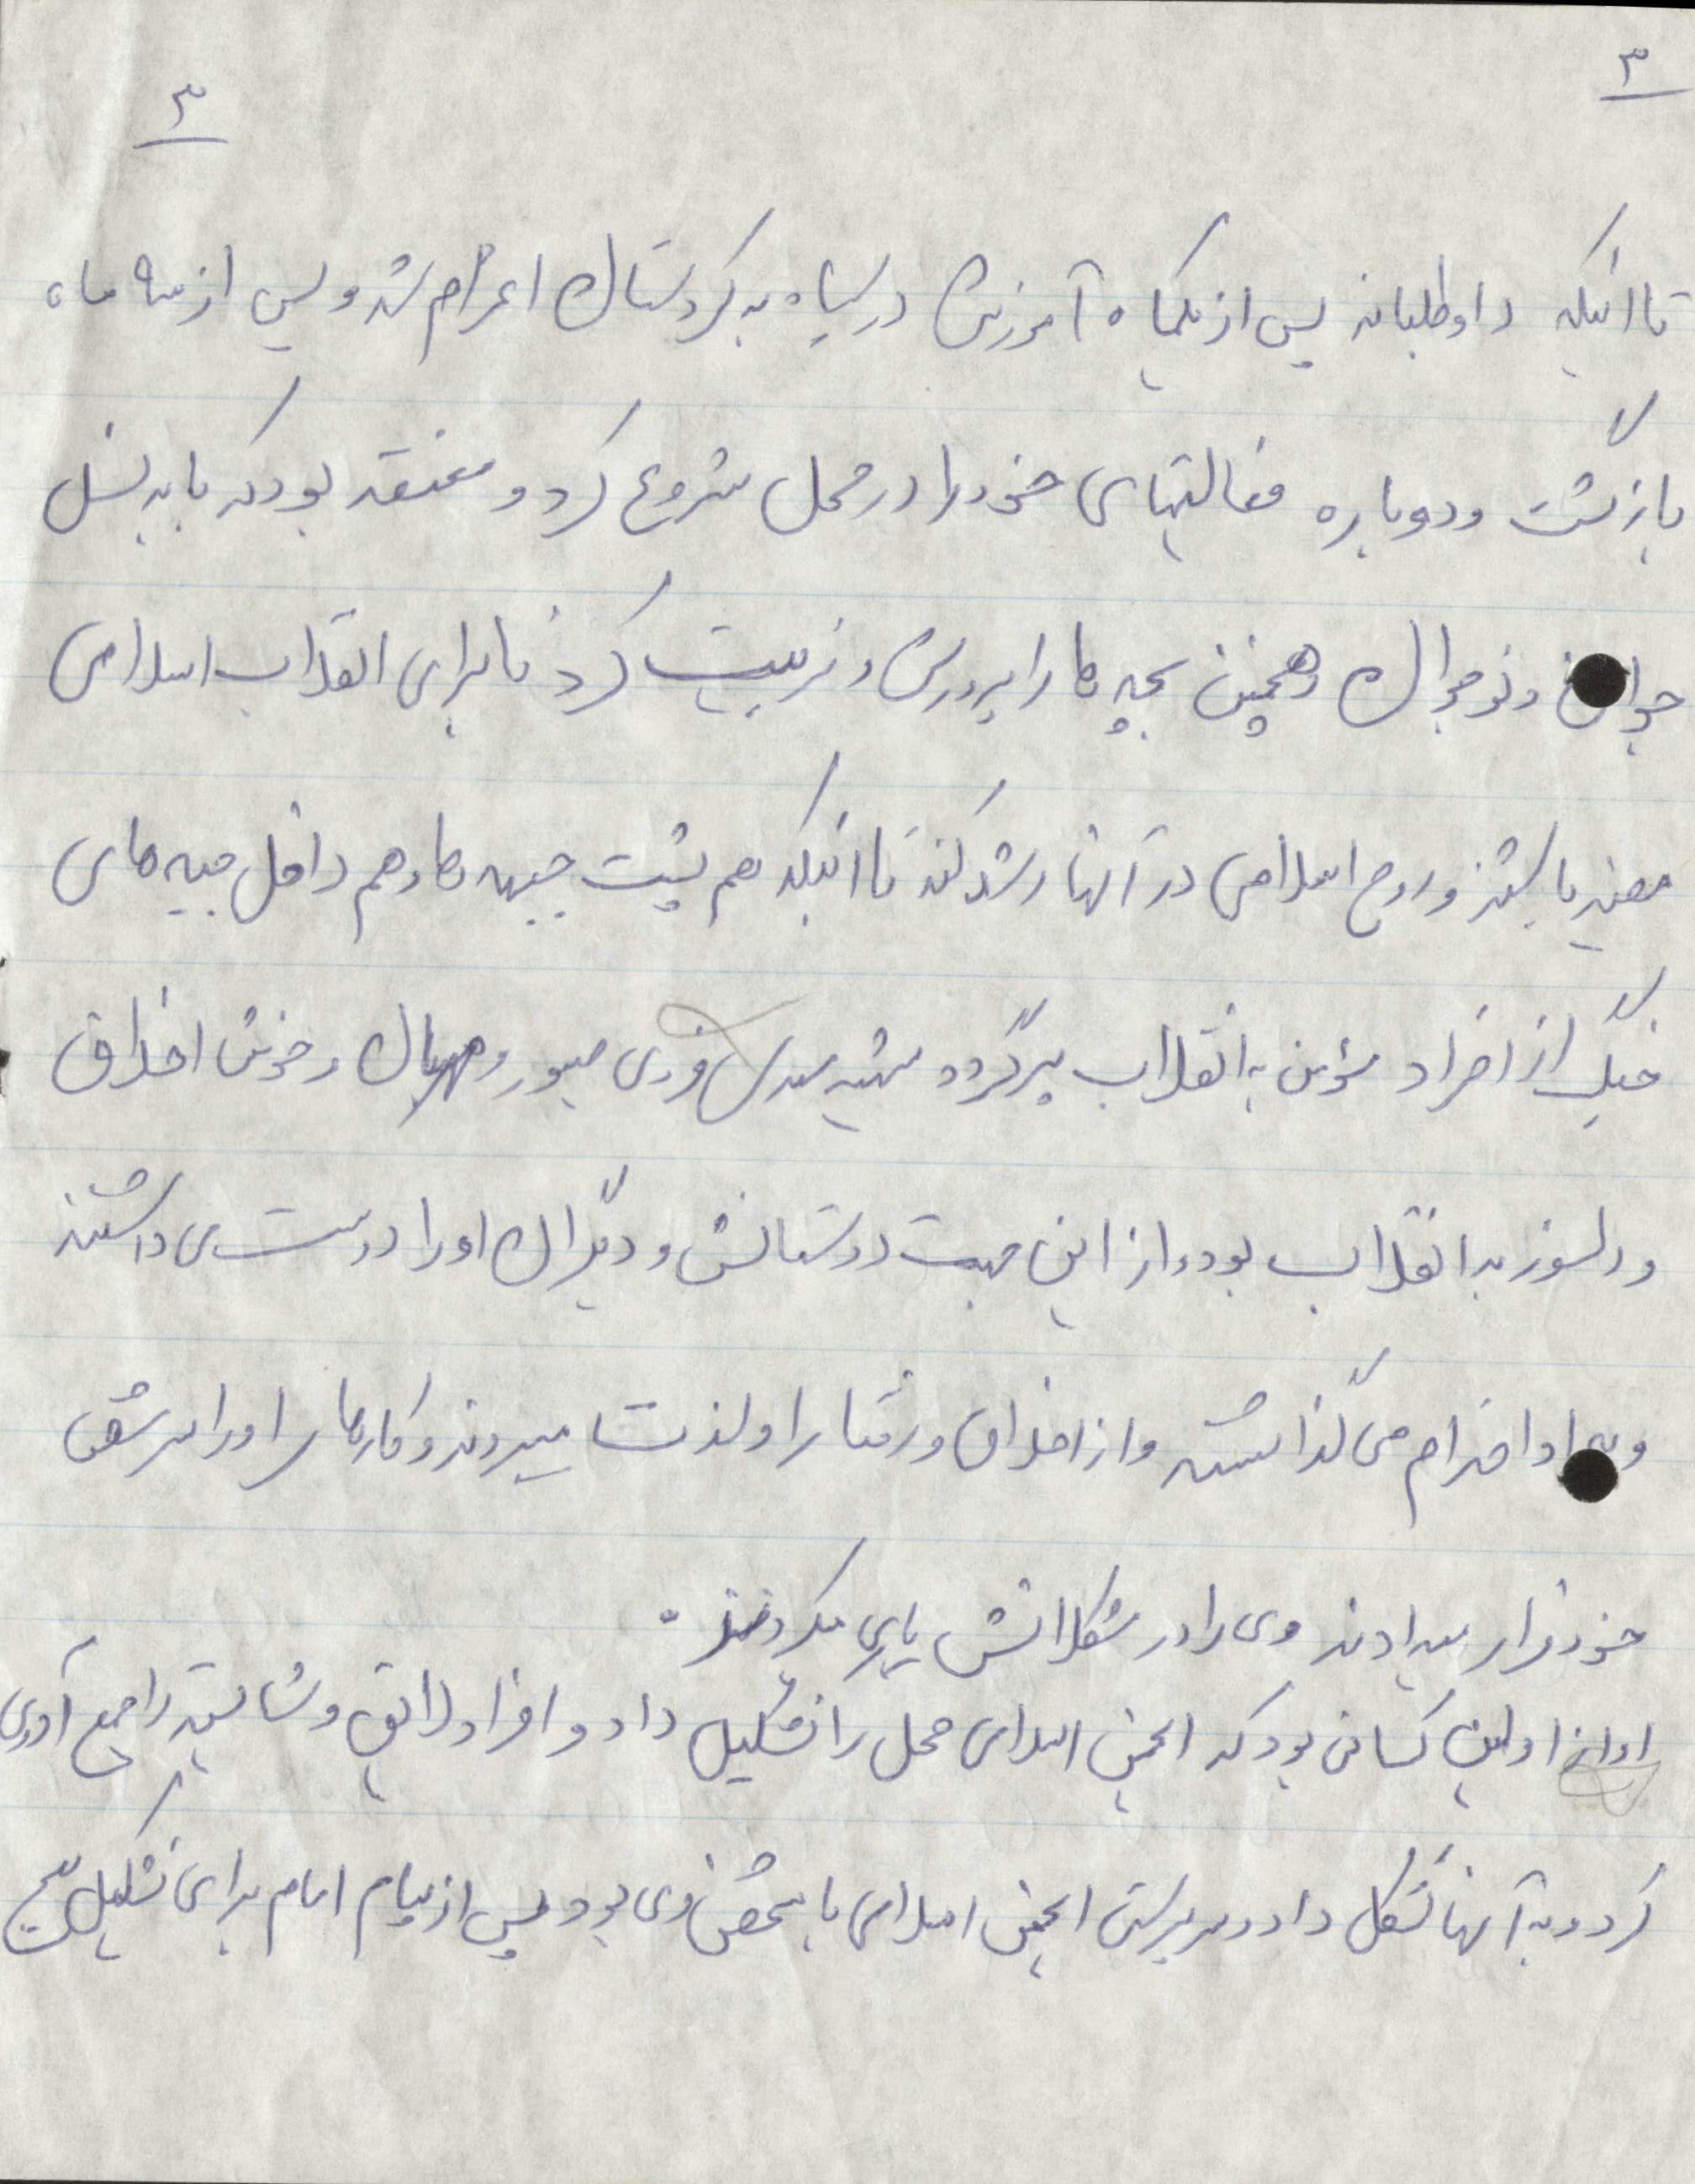 ۳
۳
تا اینکه داوطلبانه پس از یکماه آموزش در سپاه به کردستان اعزام شد و پس از سه ماه
بازگشت و دوباره فعالیتهای خود را در محل شروع کرد و معتقد بود که باید نسل
جوان و نوجوان و همچنین بچه ها را پرورش و تربیت کرد تا برای انقلاب اسلامی
مفید باشند و روح اسلامی در آنها رشد کند تا اینکه هم پشت جبهه ها و هم داخل جبهه های
جنگ از افراد مؤمن به انقلاب پر گردد شهید فردی صبور و مهربان و خوش اخلاق
و دلسوز به انقلاب بود و از این جهت دوستانش و دیگران او را دوست می داشتند
و به او احترام می گذاشتند و از اخلاق و رفتار او لذت میبردند و کارهای او را سرمشق
خود قرار میدادند وی را در مشکلاتش یاری میکردند.
او از اولین کسانی بود که انجمن اسلامی محل را تشکیل داد و افراد لایق و شایسته را جمع آوری
کرد و به آنها شکل داد و سرپرستی انجمن اسلامی با شخص وی بود و پس از پیام امام برای تشکیل بسیج